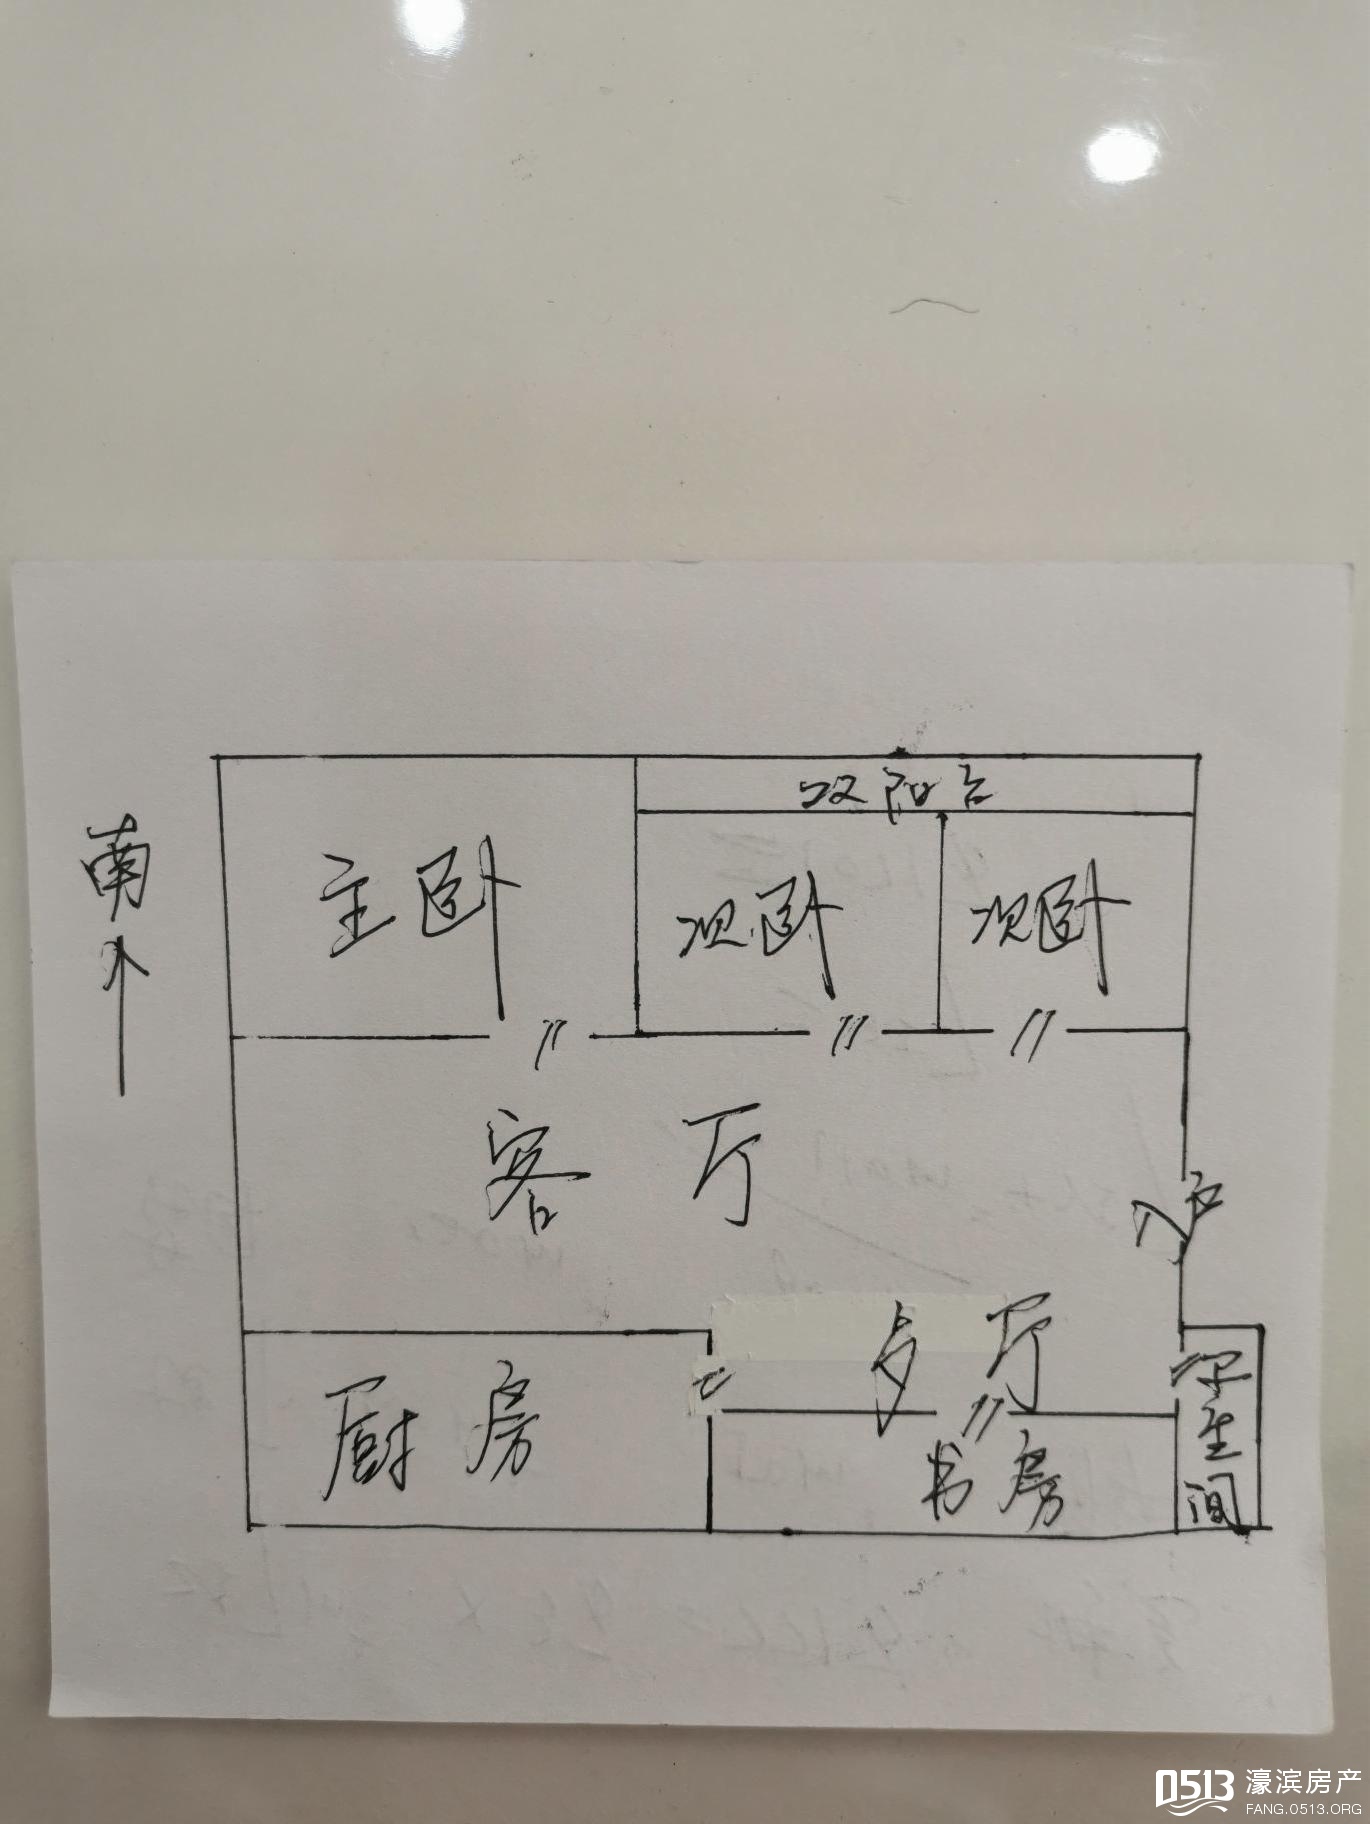 双阳台
南
主卧
次卧
次卧
客厅
入户
厅
厨房
书房
卫生间
0513 濠滨房产
FANG.0513.ORG